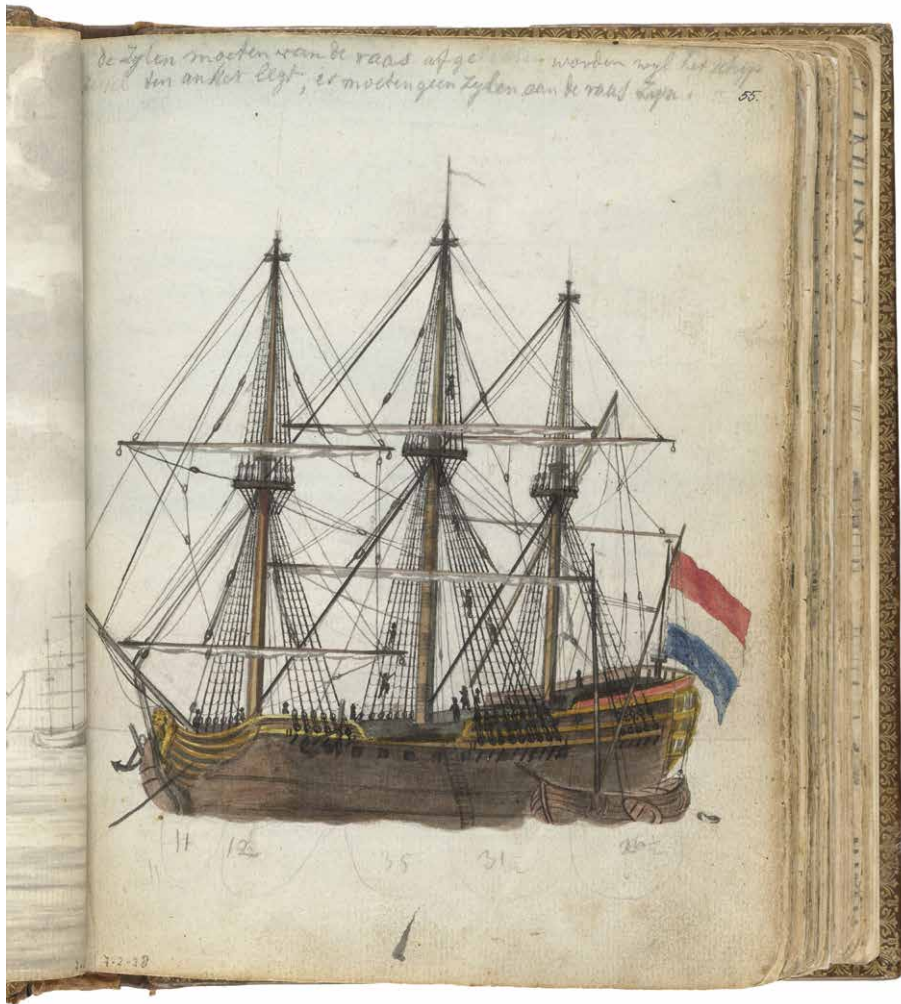 de Zylen moeten van de raas afge worden wyl het schip
ten anker legt, er moeten geen zylen aan de raas zyn.
55.
11 12 35 31
7-2-38